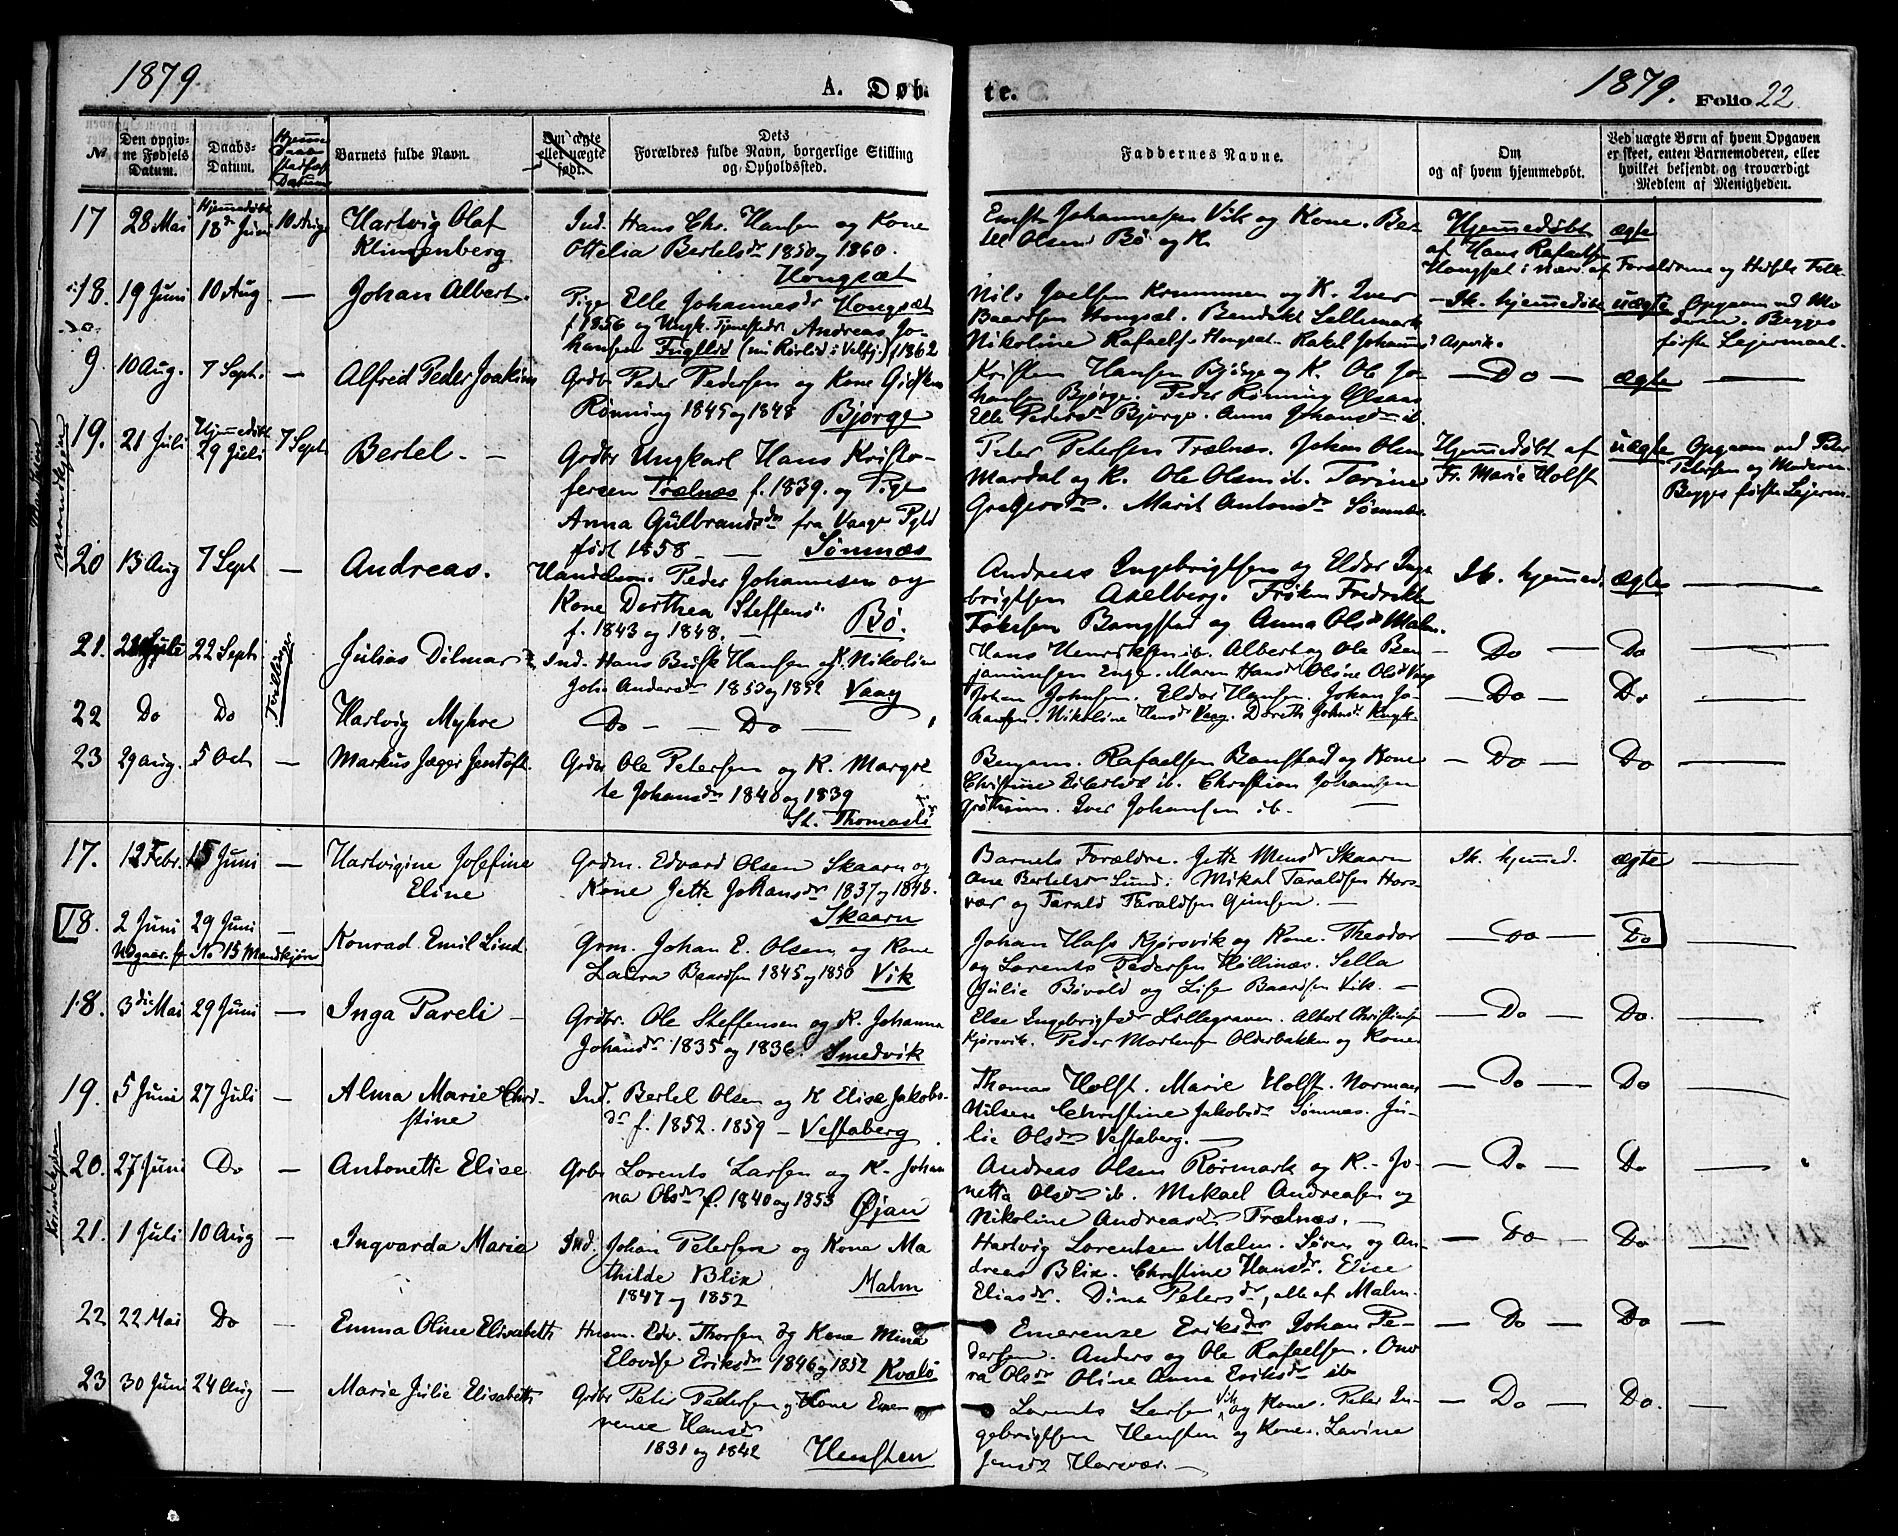 1879.
A. Døb-
te.
1879.
Folio 22.
№
Den opgiv-
ne Fødsels
Datum.
Daabs-
Datum.
Barnets fulde Navn.
Om ægte
eller uægte
født.
Dets
Forældres fulde Navn, borgerlige Stilling
og Opholdssted.
Faddernes Navne.
Om
og af hvem hjemmedøbt.
Ved uægte Børn af hvem Opgaven
er skeet, enten Barnemoderen, eller
hvilket bekjendt og troværdigt
Medlem af Menigheden.
Mandkjøn
17 28 Mai Hjemmedøbt 18de Juni 10 Aug Hartvig Olaf
Klingenberg
Ind. Hans Chr. Hansen og Kone
Ottelia Bertelsdr 1850 og 1860.
Hongsæt
Johannesen Vik og Kone. Ber-
tel Olsen Bø og K.
Hjemmedøbt
af Hans Rafaelsen
Hongsæt i nærv. af Forældrene og Folk
ægte
18. 19 Juni 10 Aug — Johan Albert.
Pige Elle Johannesdr Hongsæt
f 1856 og Ungk. Tjenestedr Andreas Jo-
hansen Fuglli (nu Rørlid i Velfj.) f 1862
Nils Joelsen Krummen og K. Iver
Baardsen Hongsæt. Bendikt Lillemark
Nikoline Rafaels Hongsæt. Rakel Johanns
— Ik. hjemmedøbt uægte Opgaven ved Mo
deren. Begges
første Lejermaal.
9. 10 Aug. 7 Sept. — Alfred Peder Joakim
Grdbr Peder Pedersen og Kone
Rønning 1845 og 1848 Bjørge
Kristen Hansen Bjørge og K. Ole Jo-
hansen Bjørge. Peder Rønning
Elle Pedersdr Bjørge. Anna Johansdr ib.
— Do — ægte
19. 21 Juli Hjemmedøbt 29 Juli 7 Sept Bertel. —
Grdbr Ungkarl Hans Kristo-
fersen Trælnæs f. 1839. og Pige
Anna Gulbrandsdr fra Vaage Pgld
født 1858 — Sømnæs
Peter Petersen Trælnæs. Johan Olsen
Mardal og K. Ole Olsen ib. Torine
Gregersdr. Marit Antonsdr Sømnes.
Hjemmedøbt af
Fr. Marie Holst
uægte Opgaven ved Peter
Petersen og Moderen.
Begges første Lejerm.
20 13 Aug 7 Sept — Andreas.
Handelsm. Peder Johannesen og
Kone Dorthea Steffens.
f. 1843 og 1848. — Bø.
Andreas Ingebrigtsen og Eldor Inge
brigtsen Axelberg. Frøken Fredrikke
Bangstad og Anna Olsdr Malm.
Ik. hjemmed. ægte
21. 22 Sept Tvillinger Julius Dilmar
Ind. Hans Hansen og K. Nikolin
Andersdr 1853 og 1852 Vaag
Hans Henriksen ib. Albert og Ole Ben
jaminsen Enge. Maren Hansdr Olsdr Vaag
— Do — Do
22 Do Do Hartvig Myhre
Do — — Do —
Johan Johnsen. Eldor Hansen. Johan Jo-
hansen. Nikoline Hansdr Vaag.
— Do — Do
23 29 Aug. 5 Oct — Markus Jæger Jentoft
Grdbr Ole Petersen og K. Margre
te Johansdr 1840 og 1839
St. Thomasli
Benjam. Rafaelsen Banstad og Kone
Christine ib. Christian Johansen
Grøtheim. Iver Johansen ib.
— Do — Do
Kvindekjøn
17. 12 Febr. 15 Juni — Hartvigine Josefine
Eline
Grdm. Edvard Olsen Skaarn og
Kone Jette Johansdr 1837 og 1843.
Skaarn
Barnets Forældre. Jette Mensdr Skaarn
Ane Bertelsdr Lund. Mikal Taraldsen Hors-
vær og Tarald Taraldsen
Ik. hjemmed. ægte
18. 2 Juni 29 Juni — Konrad Emil Lind
Udgaar. No 15 Mandkjøn
Grm. Johan E. Olsen og Kone
Laura Baardsen 1845 og 1850 Vik
Johan Hass Kjørsvik og Kone. Theodor
og Lorents Pedersen Hellinæs. Sella
Julie Bøvald og Lise Baardsen Vik. —
— Do — Do
18. 3die Mai 29 Juni — Inga Pareli —
Grdbr. Ole Steffensen og K. Johanna
Johansdr 1835 og 1836. Smedvik
Else Ingebrigtsdr Lillegraven. Albert Christians
Kjørsvik. Peder Mortensen Olderbakken og Kone
— Do — Do.
19. 5 Juni 27 Juli — Alma Marie Chri-
stine
Ind. Bertel Olsen og K Elise Jakobs-
dr f. 1852. 1859 — Vestaberg
Thomas Holst. Marie Holst. Norman
Nilsen Christine Jakobsdr Sømnæs. Ju-
lie Olsdr Vestaberg. —
— Do — Do
20. 27 Juni Do — Antonette Elise
Grbr Lorents Larsen og K. Johan
na Olsdr f. 1840 og 1853 Øjan
Andreas Olsen Rørmark og K. — Jo-
netta Olsdr ib. Mikael Andreasen og
Nikoline Andreasdr Trælnæs. —
— Do — Do
21. 1 Juli 10 Aug — Ingvarda Marie
Ind. Johan Petersen og Kone Ma
thilde Blix Malm
1847 og 1852
Hartvig Lorentsen Malm. Søren og An-
dreas Blix. Christine Hansdr. Elise
Eliasdr. Dina Petersdr, alle af Malm.
— Do — Do
22 22 Mai Do — Emma Oline Elisabeth
Husm. Edv. Thorsen og Kone Mina
Elovise Eriksdr 1846 og 1852 Kvalø
Emerense Eriksdr Johan Pe-
dersen. Anders og Ole Rafaelsen. Ono
ra Olsdr Oline Anna Eriksdr ib
— Do — Do
23 30 Juni 24 Aug — Marie Julie Elisabeth
Grdbr Peter Pedersen og Kone Eme
rense Hansdr
1831 og 1842 Hensten
Lorents Larsen Vik og Kone. Peter In-
gebrigtsen Hensten og Kone. Lavine
Jensdr Horsvær. —
— Do — Do.